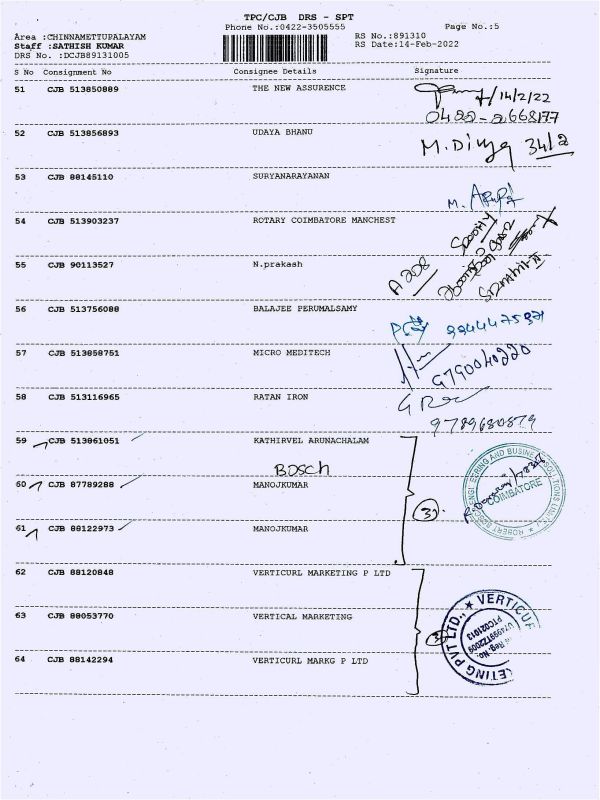 TPC/CJB DRS - SPT
Phone No.:0422-3505555 Page No.:5
Area :CHINNAMETTUPALAYAM RS No.:891310
Staff :SATHISH KUMAR RS Date:14-Feb-2022
DRS No. :DCJB89131005
S No Consignment No Consignee Details Signature
51 CJB 513850889 THE NEW ASSURENCE
14/2/22
0422-2668177
52 CJB 513856893 UDAYA BHANU
M.Divya 34/2
53 CJB 88145110 SURYANARAYANAN
M.
54 CJB 513903237 ROTARY COIMBATORE MANCHEST
55 CJB 90113527 N.prakash
A 208
56 CJB 513756088 BALAJEE PERUMALSAMY
57 CJB 513858751 MICRO MEDITECH
9790040220
58 CJB 513116965 RATAN IRON
9789680879
59 CJB 513861051 KATHIRVEL ARUNACHALAM
BOSCH
60 CJB 87789288 MANOJKUMAR
COIMBATORE
3
61 CJB 88122973 MANOJKUMAR
62 CJB 88120848 VERTICURL MARKETING P LTD
63 CJB 88053770 VERTICAL MARKETING
3
64 CJB 88142294 VERTICURL MARKG P LTD